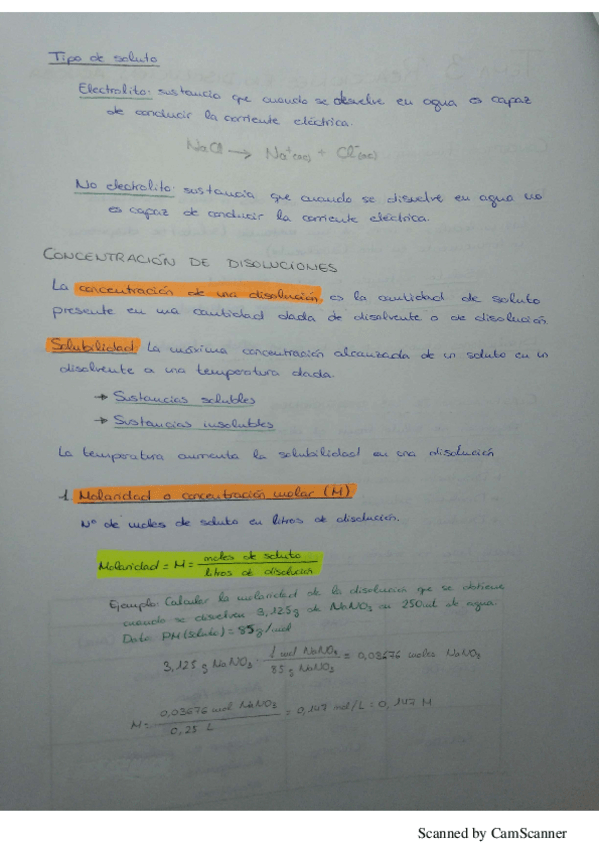 Tipo de soluto
Electrolito: sustancia que cuando se disuelve en agua es capaz
de conducir la corriente eléctrica.
NaCl → Na⁺(ac) + Cl⁻(ac)
No electrolito: sustancia que cuando se disuelve en agua no
es capaz de conducir la corriente eléctrica.
CONCENTRACIÓN DE DISOLUCIONES
La concentración de una disolución, es la cantidad de soluto
presente en una cantidad dada de disolvente o de disolución
Solubilidad: La máxima concentración alcanzada de un soluto en un
disolvente a una temperatura dada.
→ Sustancias solubles
→ Sustancias insolubles
La temperatura aumenta la solubilidad en una disolución
1. Molaridad o concentración molar (M)
Nº de moles de soluto en litros de disolución.
Molaridad = M = moles de soluto
litros de disolución
Ejemplo: Calcular la molaridad de la disolución que se obtiene
cuando se disuelven 3,125g de NaNO₃ en 250ml de agua.
Dato: PM (soluto) = 85g/mol
3,125 g NaNO₃ · 1 mol NaNO₃ = 0,03676 moles NaNO₃
85 g NaNO₃
M = 0,03676 mol NaNO₃ = 0,147 mol/L = 0,147 M
0,25 L
Scanned by CamScanner